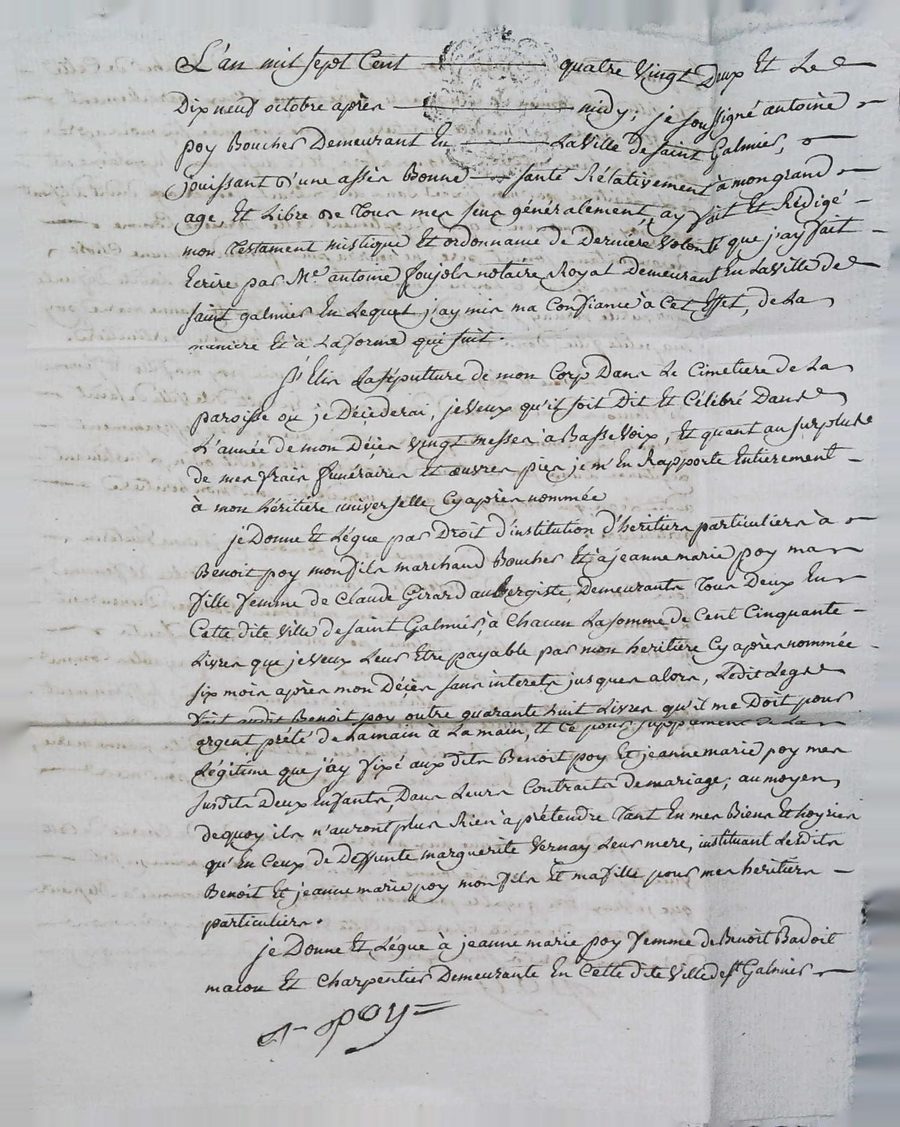 L'an mil sept Cent quatre Vingt Deux Et Le
Dix neuf octobre après midy; je soussigné antoine
poy Boucher Demeurant En La Ville de saint Galmier,
jouissant d'une assés Bonne santé Rélativement à mon grand
age, Et Libre de Tous mes sens généralement, ay fait Et Rédigé
mon Testament mistique Et ordonnance de Derniere Volonté que j'ay fait
Ecrire par Me. antoine foujols notaire Royal Demeurant En La Ville de
saint galmier En Lequel j'ay mis ma Confiance à Cet Effet, de La
maniere Et à La forme qui suit.
J'Elis La sépulture de mon Corps Dans Le Cimetiere de La
paroisse ou je Décéderai, je Veux qu'il soit Dit Et Célébré Dans
L'année de mon Décès Vingt messes à Basse Voix, Et quant au surplus
de mes frais funéraires Et œuvres pies je m'En Rapporte Entierement
à mon héritière universelle Cy après nommée
je Donne Et Légue par Droit d'institution d'heritiers particuliers à
Benoit poy mon fils marchand Boucher Et à jeanne marie poy ma
fille femme de Claude Girard aubergiste, Demeurants Tous Deux En
Cette dite Ville de saint Galmier, à Chacun La somme de Cent Cinquante
Livres que je Veux Leur Etre payable par mon heritiere Cy après nommée
six mois après mon Décès sans interets jusques alors, Ledit Legs
fait audit Benoit poy outre quarante huit Livres qu'il me Doit pour
argent prété de La main à La main, Et Ce pour supplement de La
Légitime que j'ay fixé aux dits Benoit poy Et jeanne marie poy mes
susdits Deux Enfants, Dans Leurs Contrats de mariage; au moyen
de quoy ils n'auront plus Rien à prétendre Tant En mes Biens Et hoyries
qu'En Ceux de Deffunte marguerite Vernay Leur mere, instituant Lesdits
Benoit Et jeanne marie poy mon fils Et ma fille pour mes heritiers
particuliers.
je Donne Et Légue à jeanne marie poy femme de Benoit Badoit
macon Et Charpentier Demeurants En Cette dite Ville de st Galmier
A poy